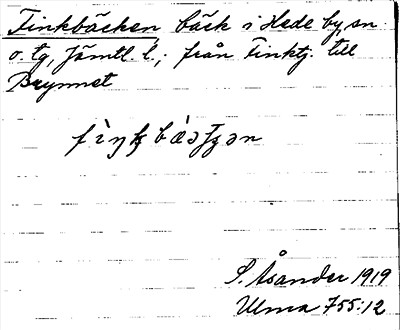 Finkbäcken bäck i Hede by, sn
o. tg, Jämtl. l.; från Finktj. till
Brynnet
S. Åsander 1919
Ulma 755:12